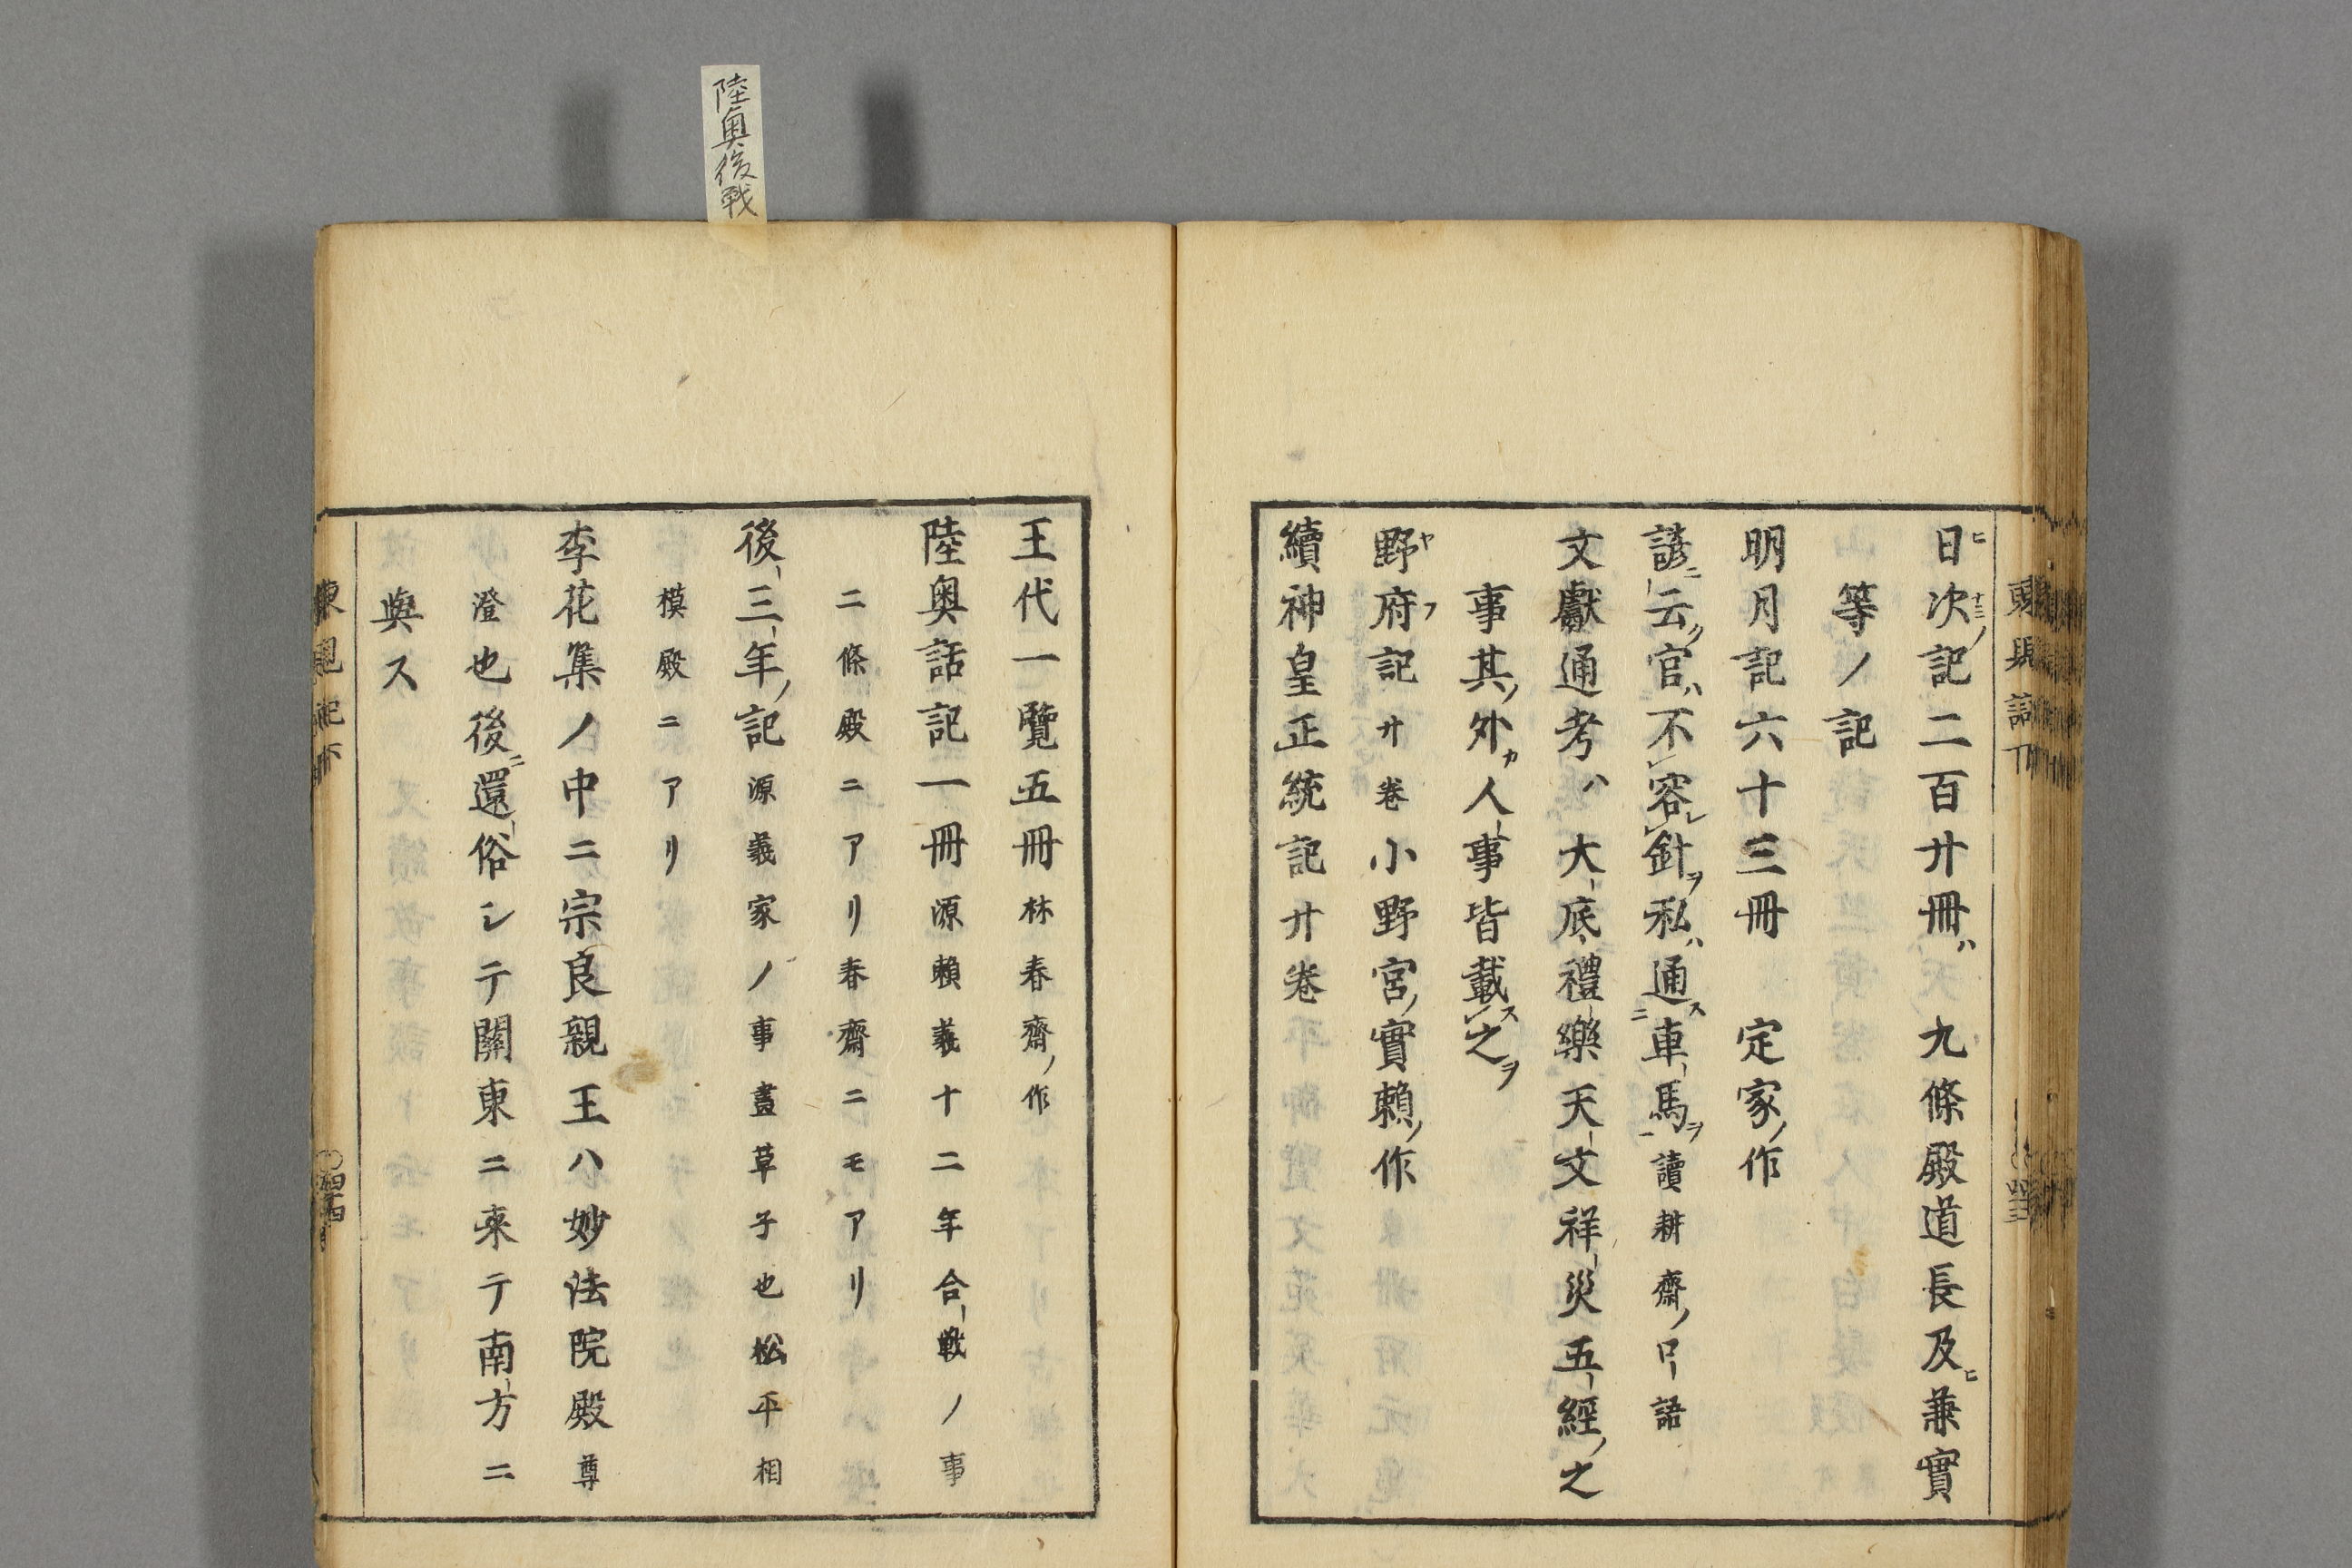 陸奥後戦
日次記二百廿冊ハ 九條殿道長及兼實
等ノ記
明月記六十三冊 定家ノ作
諺ニ云ク官ハ不容レ針ヲ私ハ通ス車馬ヲ 讀耕齋ノ口語
文獻通考ハ大底禮樂天文祥災五經ノ之
事其ノ外カ人事皆載ス之ヲ
野府記 廿卷 小野宮ノ實頼ノ作
續神皇正統記廿卷
王代一覽五冊 林春齋ノ作
陸奥話記一冊 源頼義十二年合戰ノ事
二條殿ニアリ春齋ニモアリ
後三年ノ記 源義家ノ事畫草子也松平相
模殿ニアリ
李花集ノ中ニ宗良親王ハ妙法院殿尊
澄也後ニ還俗シテ關東ニ来テ南方ニ
與ス